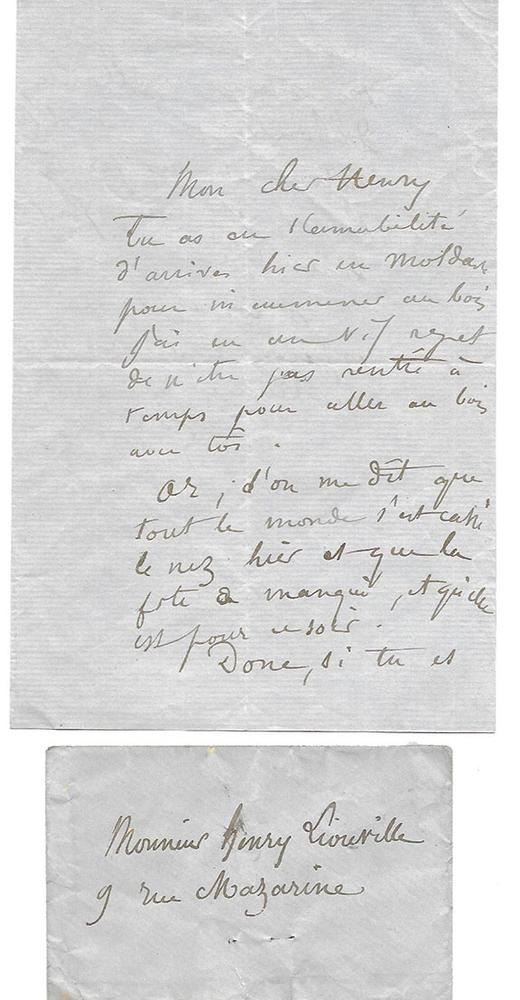 Mon cher Henry
Tu as eu l'amabilité
d'arriver hier en Moldave
pour m'emmener au bois
j'ai eu un vif regret
de n'être pas rentré à
temps pour aller au bois
avec toi.
Or, l'on me dit que
tout le monde s'est cassé
le nez hier et que la
fête a manqué, et qu'elle
est pour ce soir.
Donc, si tu es
Monsieur Henry Liouville
9 rue Mazarine